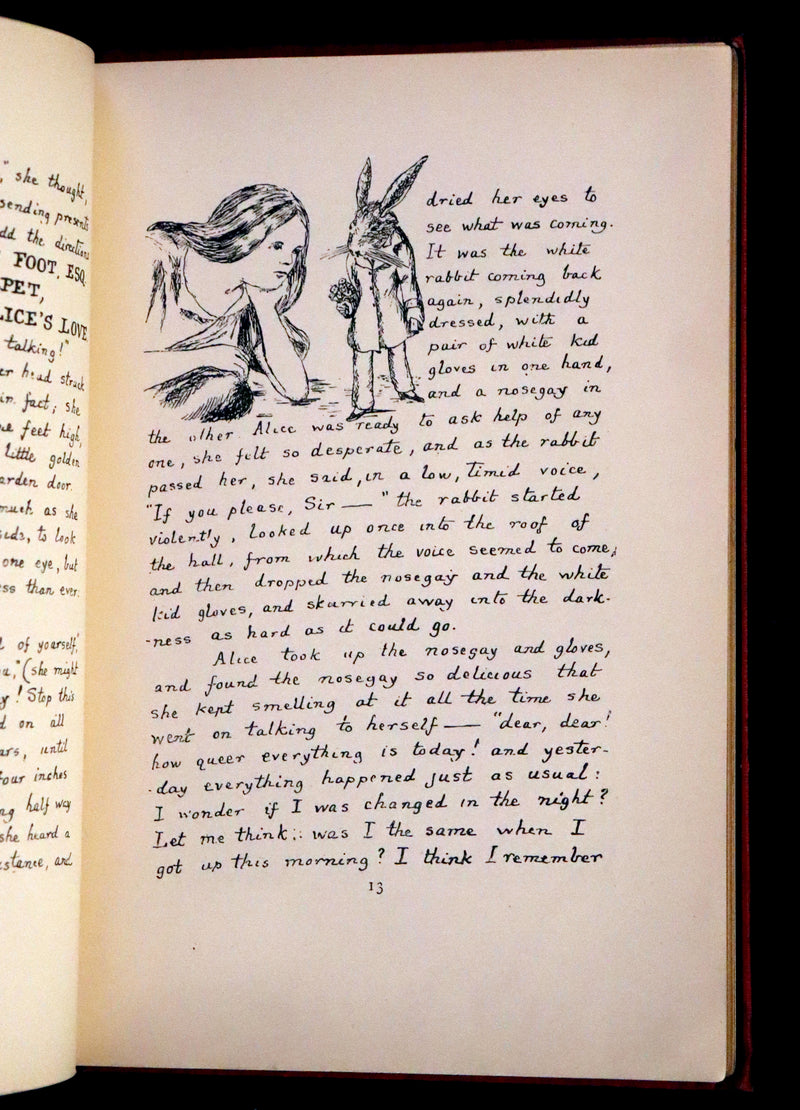 " she thought,
sending presents
the directions
FOOT, ESQ.
PET,
ALICE'S LOVE
talking!"
head struck
in fact; she
feet high,
little golden
garden door.
much as she
to look
one eye, but
than ever.
of yourself,"
(she might
! Stop this
on all
until
four inches
half way
she heard a
and
dried her eyes to
see what was coming.
It was the white
rabbit coming back
again, splendidly
dressed, with a
pair of white kid
gloves in one hand,
and a nosegay in
the other. Alice was ready to ask help of any
one, she felt so desperate, and as the rabbit
passed her, she said, in a low, timid voice,
"If you please, Sir—" the rabbit started
violently, looked up once into the roof of
the hall, from which the voice seemed to come,
and then dropped the nosegay and the white
kid gloves, and skurried away into the dark-
-ness as hard as it could go.
Alice took up the nosegay and gloves,
and found the nosegay so delicious that
she kept smelling at it all the time she
went on talking to herself— "dear, dear!
how queer everything is today! and yester-
-day everything happened just as usual:
I wonder if I was changed in the night?
Let me think: was I the same when I
got up this morning? I think I remember
13